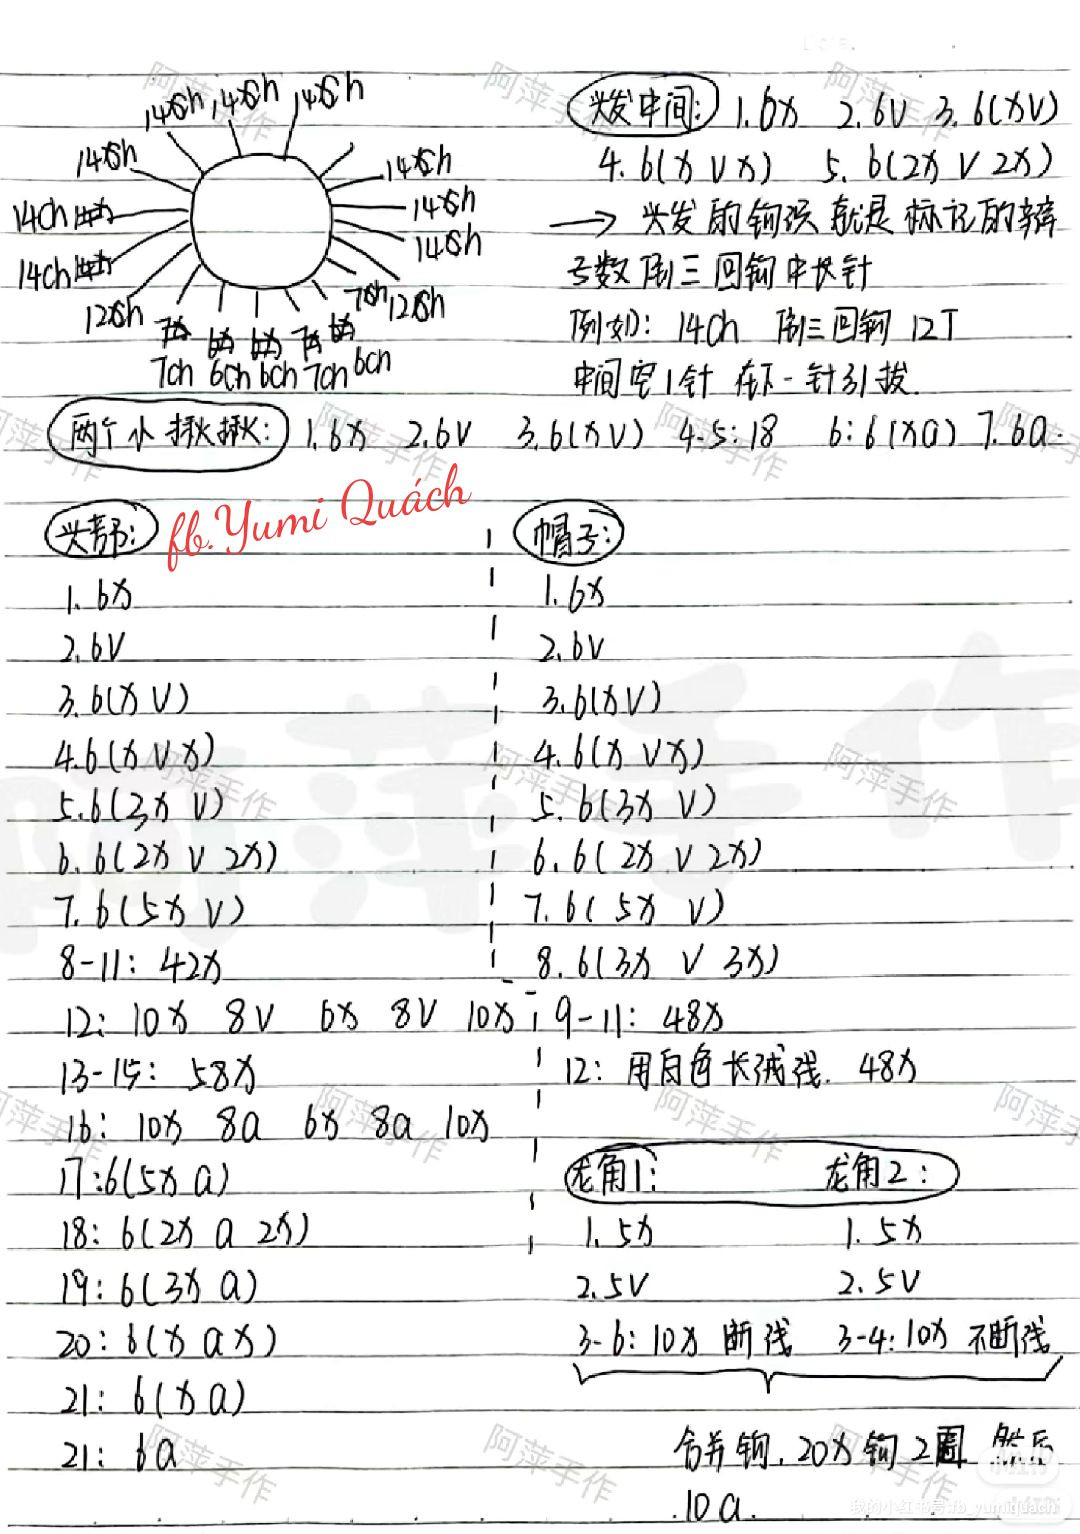 14Ch 14Ch 14Ch
14Ch
14Ch
14Ch
12Ch
7ch 6Ch 6ch 7ch 6ch
7Ch 12Ch
14Ch
14Ch
14Ch
头发中间: 1.6X 2.6V 3.6(XV)
4.6(X V X) 5.6(2X V 2X)
→ 头发的钩织就是标记的辫
子数 倒三回钩中长针
例如: 14Ch 倒三回钩 12T
中间空1针 在下一针引拔.
两个小揪揪: 1.6X 2.6V 3.6(XV) 4-5:18 6:6(Xa) 7.6a.
fb.Yumi Quách
头部:
1.6X
2.6V
3.6(X V)
4.6(X V X)
5.6(3X V)
6.6(2X V 2X)
7.6(5X V)
8-11: 42X
12: 10X 8V 6X 8V 10X
13-15: 58X
16: 10X 8a 6X 8a 10X
17:6(5X a)
18: 6(2X a 2X)
19: 6(3X a)
20: 6(X a X)
21: 6(X a)
21: 6a
帽子:
1.6X
2.6V
3.6(XV)
4.6(X VX)
5.6(3X V)
6.6(2X V 2X)
7.6(5X V)
8.6(3X V 3X)
9-11: 48X
12: 用白色长绒线. 48X
龙角1: 龙角2:
1.5X 1.5X
2.5V 2.5V
3-6:10X 断线 3-4:10X 不断线
合并钩.20X钩2圈 然后
10a.
阿萍手作
我的小红书号:fb_yumiquach